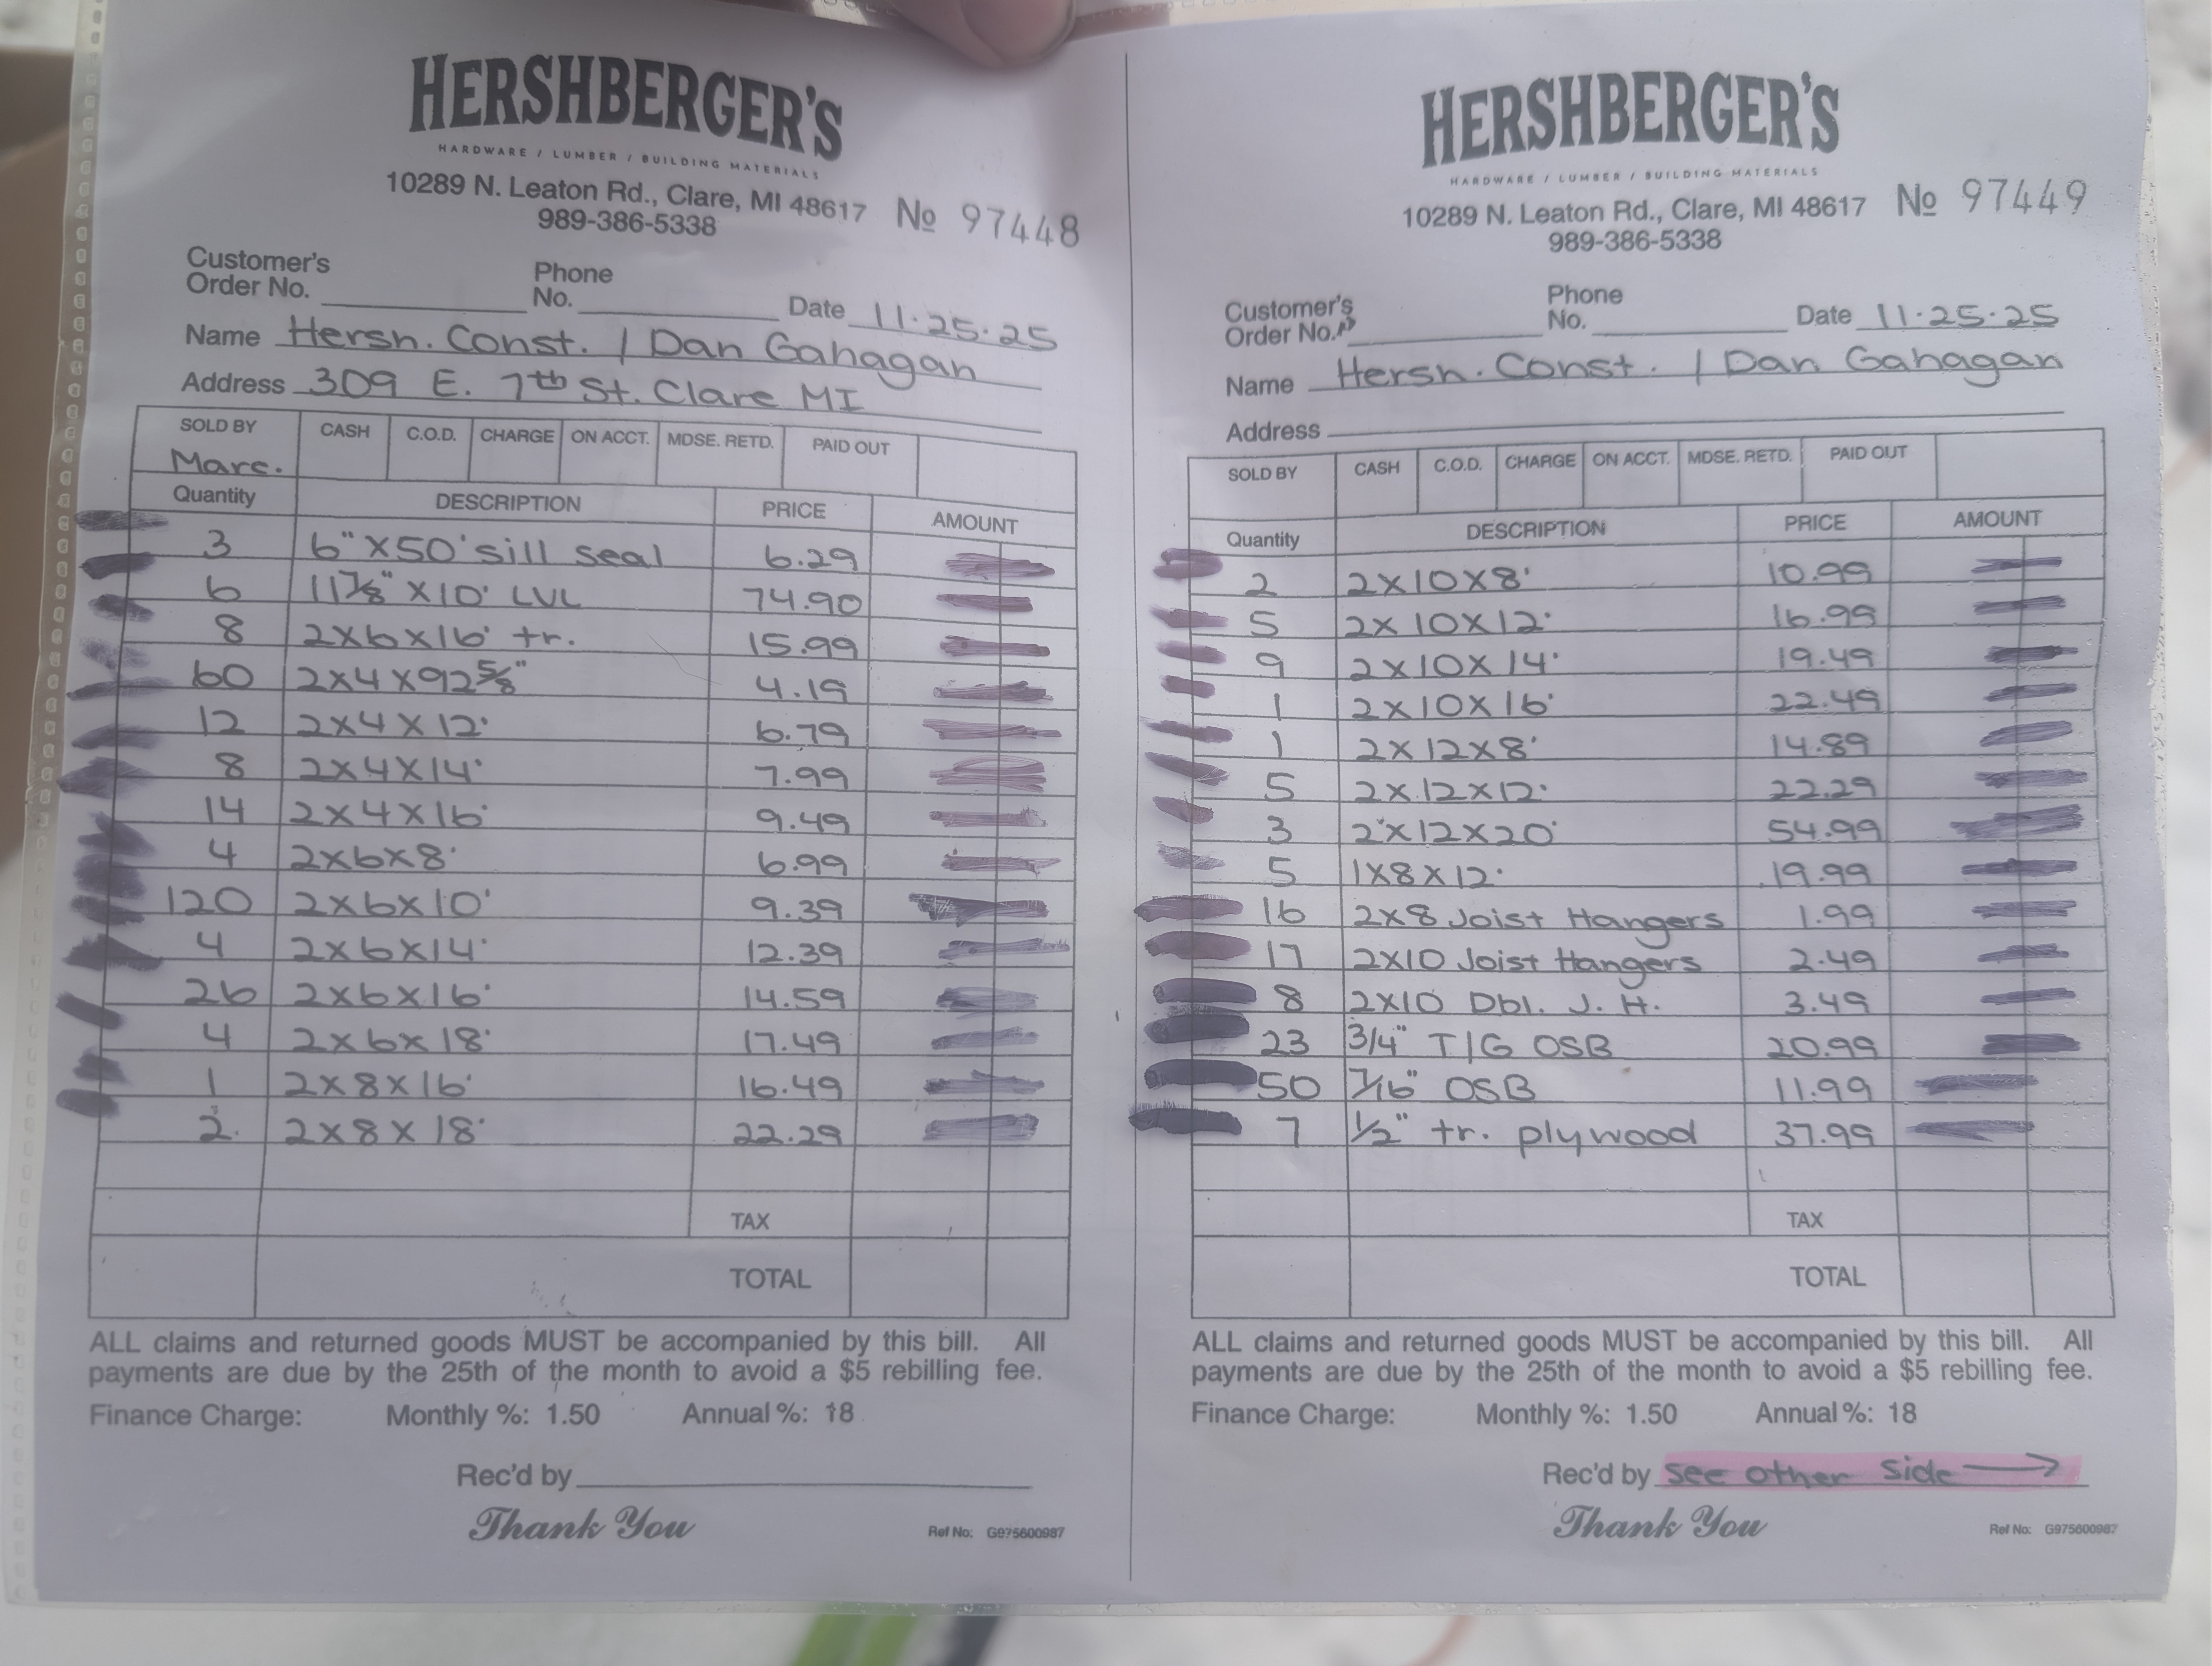 HERSHBERGER'S
HARDWARE / LUMBER / BUILDING MATERIALS
10289 N. Leaton Rd., Clare, MI 48617 № 97448
989-386-5338
Customer's Order No. Phone No. Date 11.25.25
Name Hersh. Const. / Dan Gahagan
Address 309 E. 7th St. Clare MI
SOLD BY CASH C.O.D. CHARGE ON ACCT. MDSE. RETD. PAID OUT
Marc.
Quantity DESCRIPTION PRICE AMOUNT
3 6" X50' sill seal 6.29
6 11 7/8" X10' LVL 74.90
8 2x6x16' tr. 15.99
60 2x4x92 5/8" 4.19
12 2x4x12' 6.79
8 2x4x14' 7.99
14 2x4x16' 9.49
4 2x6x8' 6.99
120 2x6x10' 9.39
4 2x6x14' 12.39
26 2x6x16' 14.59
4 2x6x18' 17.49
1 2x8x16' 16.49
2 2x8x18' 22.29
TAX
TOTAL
ALL claims and returned goods MUST be accompanied by this bill. All
payments are due by the 25th of the month to avoid a $5 rebilling fee.
Finance Charge: Monthly %: 1.50 Annual %: 18
Rec'd by
Thank You
Ref No: G975600987
HERSHBERGER'S
HARDWARE / LUMBER / BUILDING MATERIALS
10289 N. Leaton Rd., Clare, MI 48617 № 97449
989-386-5338
Customer's Order No. Phone No. Date 11.25.25
Name Hersh. Const. / Dan Gahagan
Address
SOLD BY CASH C.O.D. CHARGE ON ACCT. MDSE. RETD. PAID OUT
Quantity DESCRIPTION PRICE AMOUNT
2 2x10x8' 10.99
5 2x10x12' 16.99
9 2x10x14' 19.49
1 2x10x16' 22.49
1 2x12x8' 14.89
5 2x12x12' 22.29
3 2x12x20' 54.99
5 1x8x12' 19.99
16 2x8 Joist Hangers 1.99
17 2x10 Joist Hangers 2.49
8 2x10 Dbl. J. H. 3.49
23 3/4" T/G OSB 20.99
50 7/16" OSB 11.99
7 1/2" tr. plywood 37.99
TAX
TOTAL
ALL claims and returned goods MUST be accompanied by this bill. All
payments are due by the 25th of the month to avoid a $5 rebilling fee.
Finance Charge: Monthly %: 1.50 Annual %: 18
Rec'd by see other side →
Thank You
Ref No: G975600987